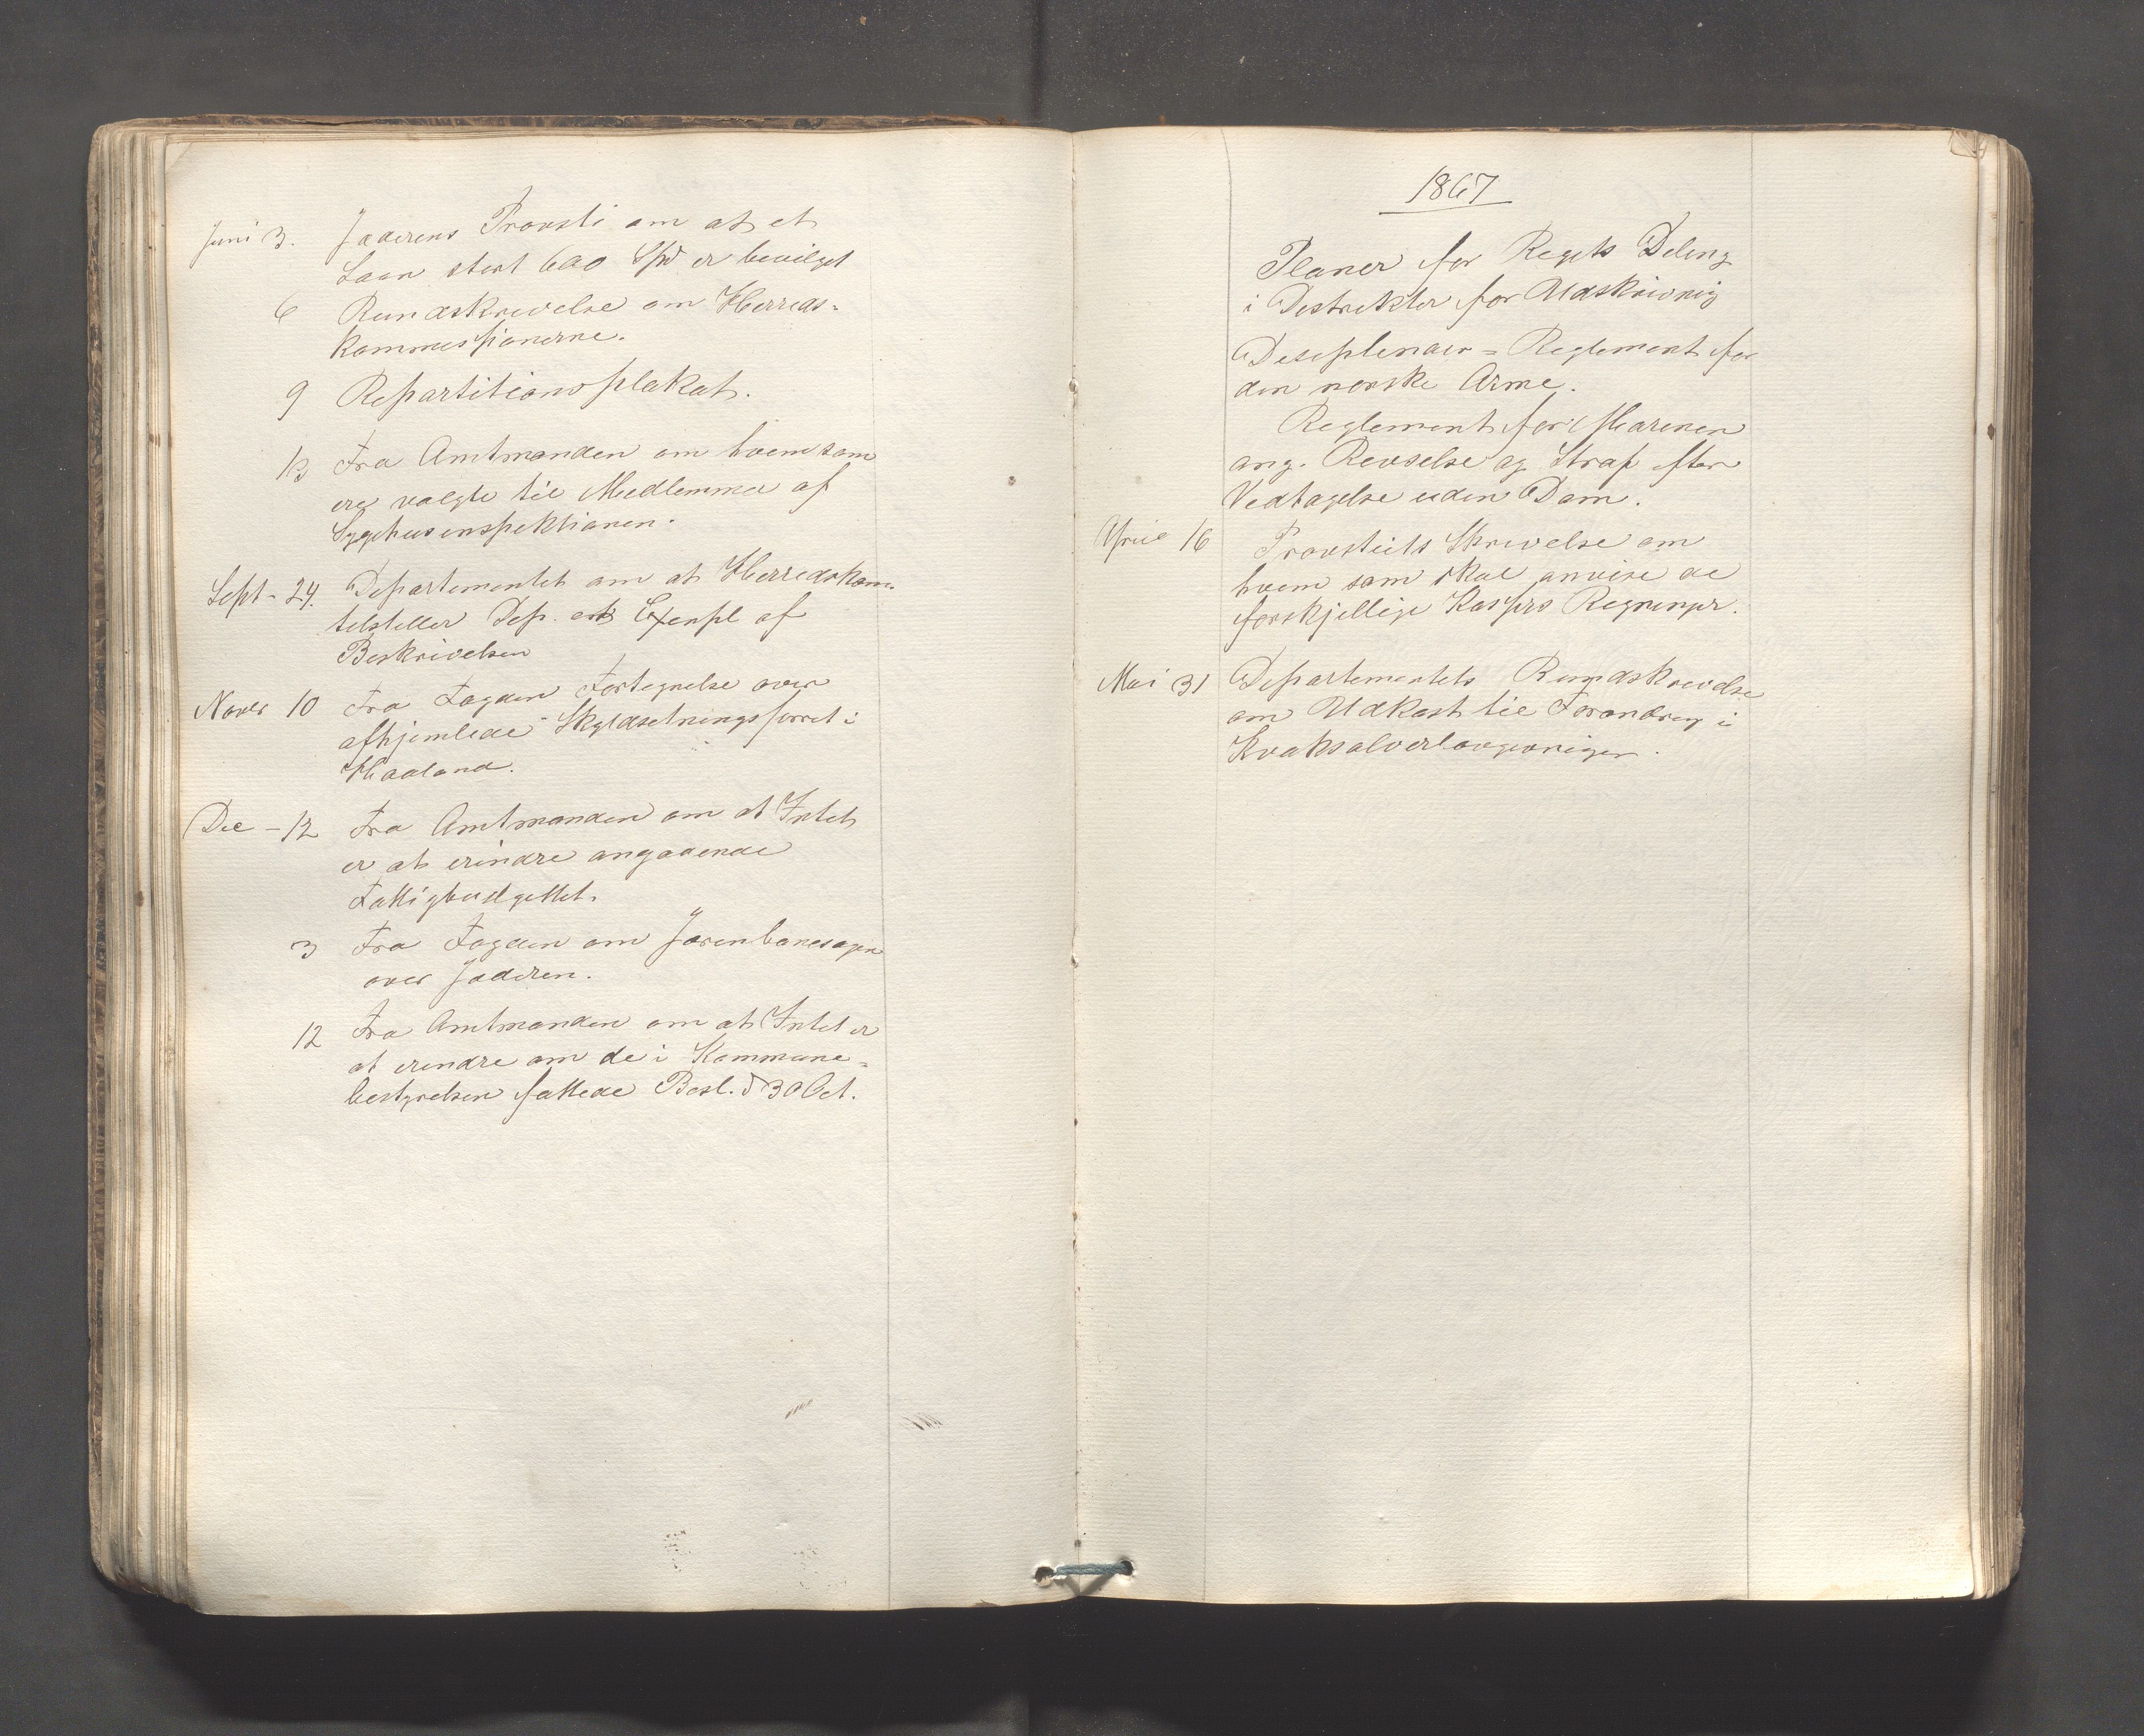 Juni 3. Jæderens Provsti om at et
Laan stort 600 Spd er bevilget
6 Rundskrivelse om Herreds-
kommissionerne.
9 Repartitionsplakat.
13 Fra Amtmanden om hvem som
ere valgte til Medlemmer af
Sygehusinspektionen.
Sept - 24. Departementet om at Herredskom.
tilstiller Dep. et Exempl af
Beskrivelsen
Novbr 10 Fra Fogden Fortegnelse over
afhjemlede Skyldsetningsforret i
Haaland.
Dec - 12 Fra Amtmanden om at Intet
er at erindre angaaende
Fattigbudgettet.
3 Fra Fogden om Jærenbanesagen
over Jæderen.
12 Fra Amtmanden om at Intet er
at erindre om de i Kommune-
bestyrelsen fattede Besl. d 30 Oct.
1867
Planer for Rigets Deling
i Distrikter for Udskrivnig
Disiplinær = Reglement for
den norske Arme.
Reglement for Marinen
ang. Revselse og Straf efter
Vedtagelse uden Dom.
April 16 Provstiets Skrivelse om
hvem som skal anvise de
forskjellige Kassers Regninger.
Mai 31 Departementets Rundskrivelse
om Udkast til Forandring i
Kvaksalverlovgivnigen.